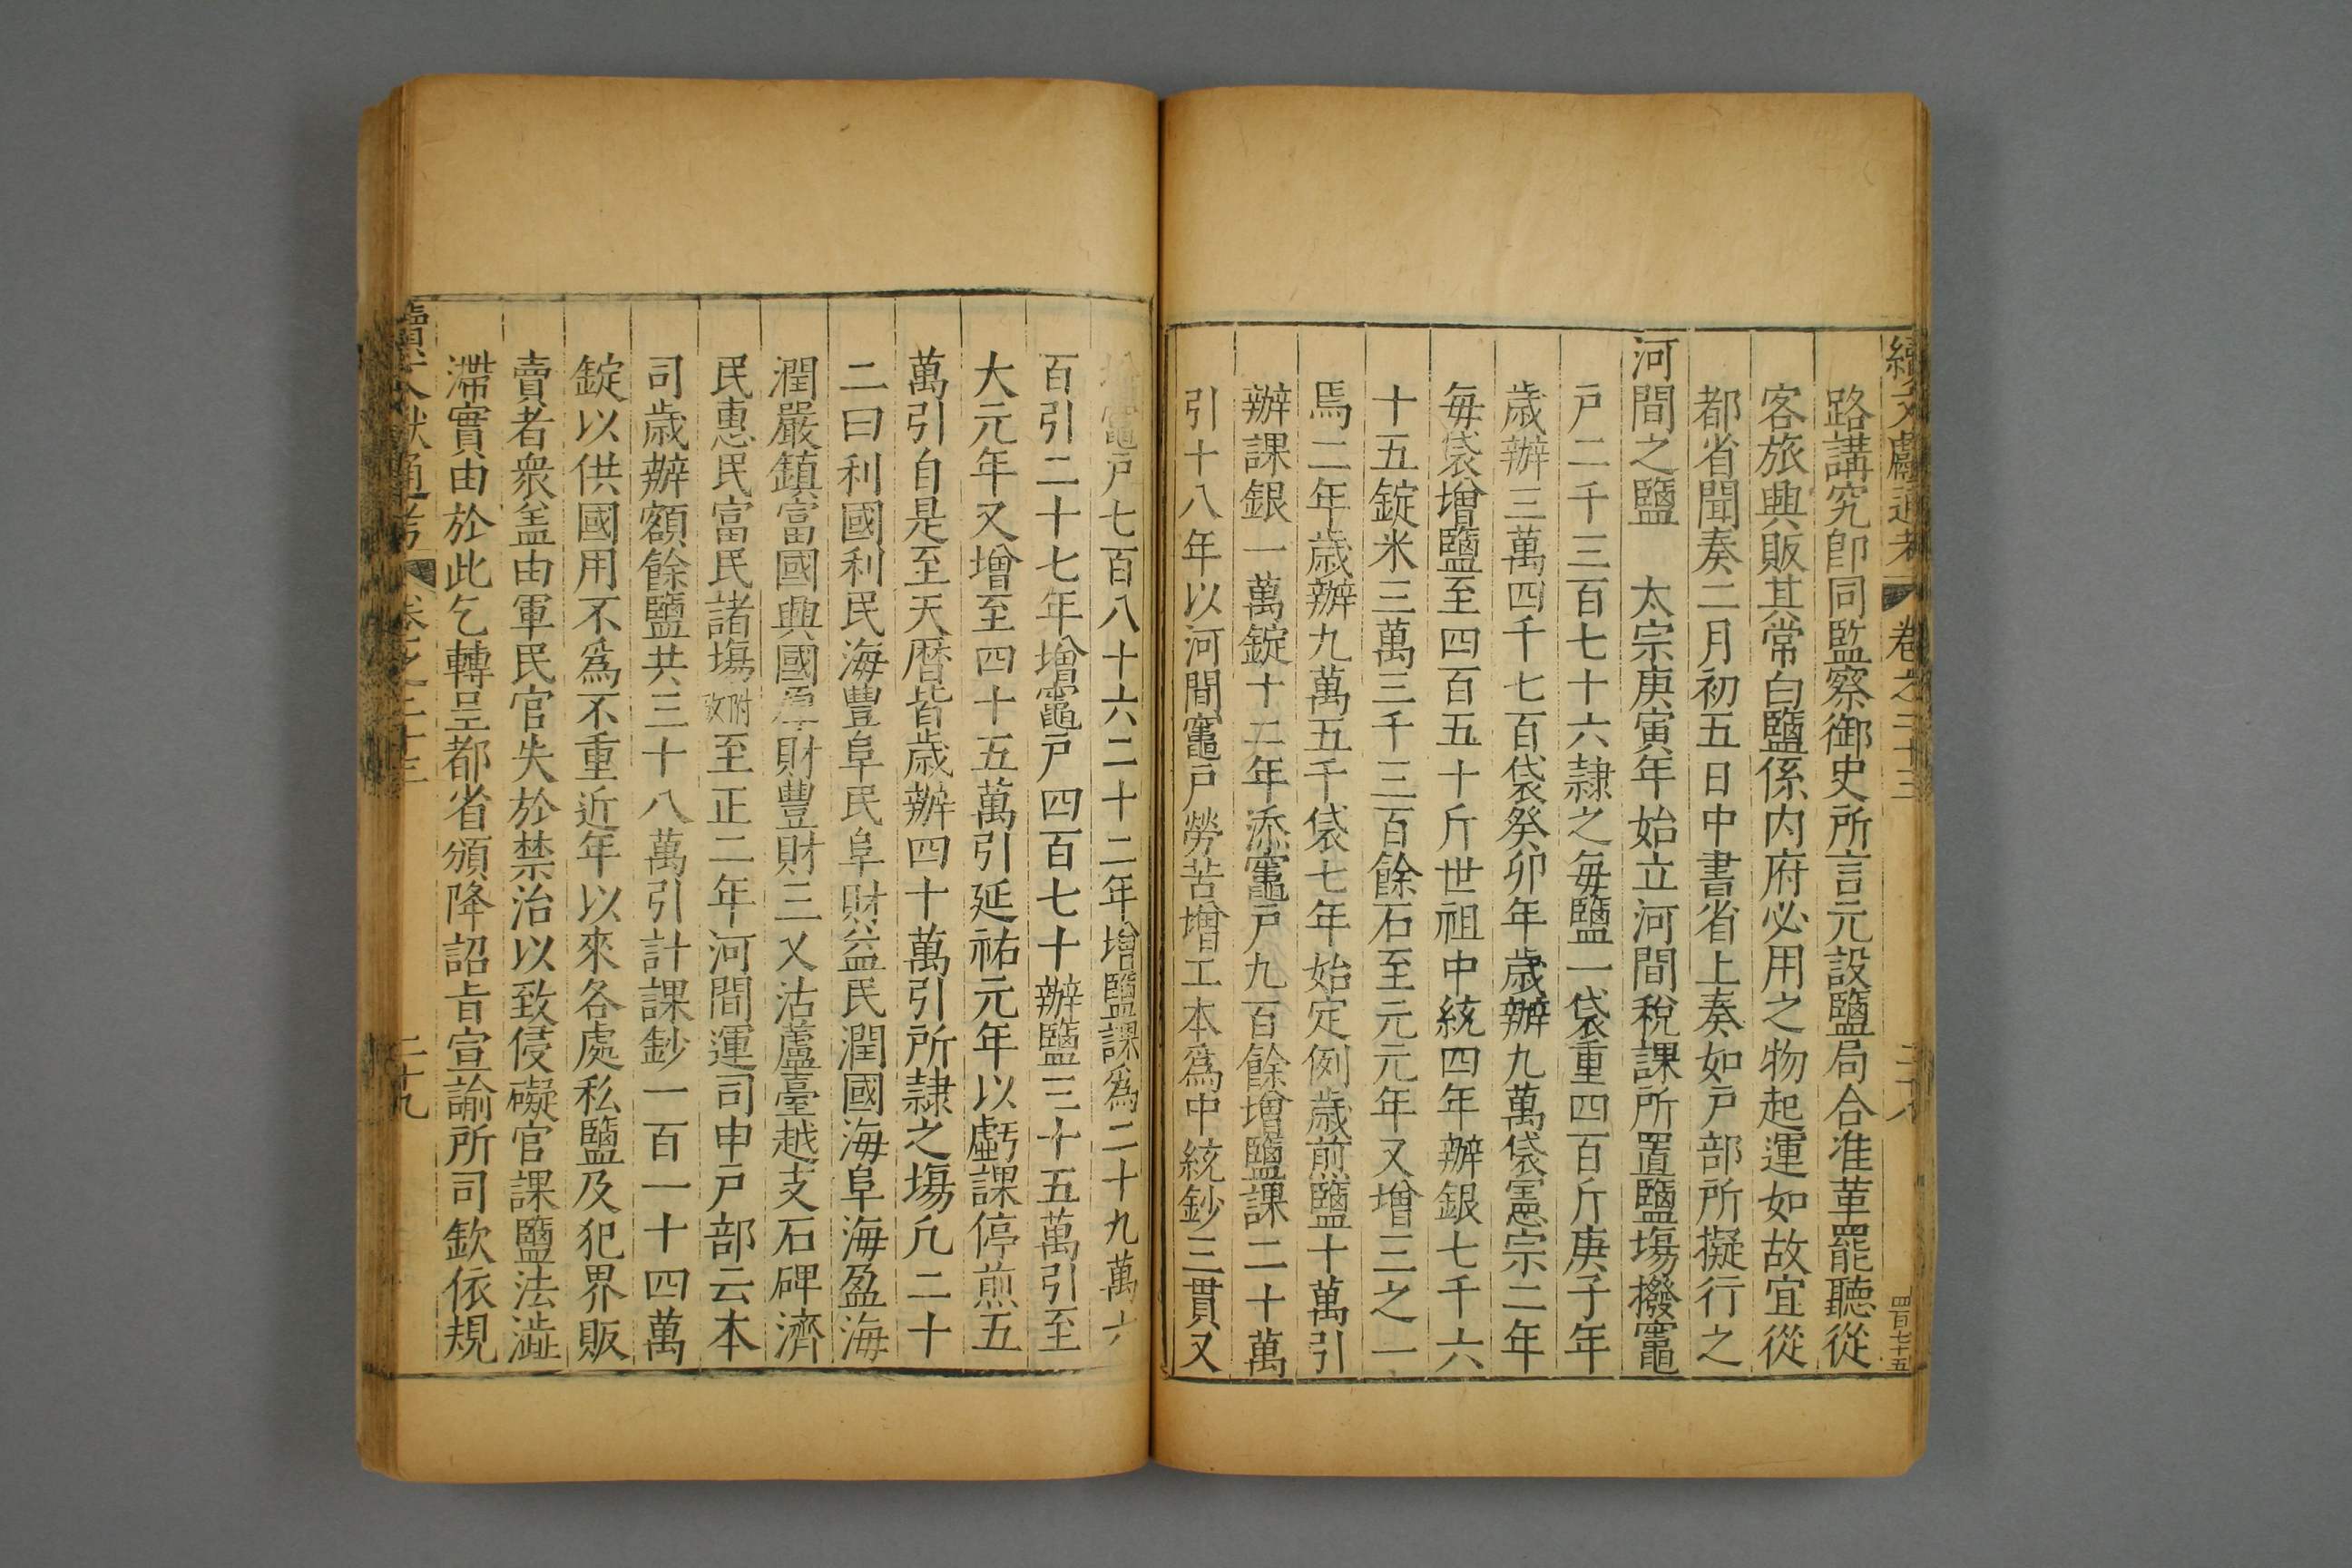 續文獻通考 卷之二十三 二十八 四百七十五
路講究卽同監察御史所言元設鹽局合准革罷聽從
客旅興販其常白鹽係内府必用之物起運如故宜從
都省聞奏二月初五日中書省上奏如戸部所擬行之
河間之鹽 太宗庚寅年始立河間稅課所置鹽塲撥竈
戸二千三百七十六隷之每鹽一袋重四百斤庚子年
歲辦三萬四千七百袋癸卯年歲辦九萬袋憲宗二年
每袋增鹽至四百五十斤世祖中統四年辦銀七千六
十五錠米三萬三千三百餘石至元元年又增三之一
焉二年歲辦九萬五千袋七年始定例歲煎鹽十萬引
辦課銀一萬錠十二年添竈戸九百餘增鹽課二十萬
引十八年以河間竈戸勞苦增工本爲中統鈔三貫又
竈戸七百八十六二十二年增鹽課爲二十九萬六
百引二十七年增竈戸四百七十辦鹽三十五萬引至
大元年又增至四十五萬引延祐元年以虧課停煎五
萬引自是至天曆皆歲辦四十萬引所隷之塲凢二十
二曰利國利民海豐阜民阜財益民潤國海阜海盈海
潤嚴鎮富國興國厚財豐財三乂沽蘆臺越支石碑濟
民惠民富民諸塲附攷至正二年河間運司申戸部云本
司歲辦額餘鹽共三十八萬引計課鈔一百一十四萬
錠以供國用不爲不重近年以來各處私鹽及犯界販
賣者衆盖由軍民官失於禁治以致侵礙官課鹽法澁
滯實由於此乞轉呈都省頒降詔㫖宣諭所司欽依規
續文獻通考 卷之二十三 二十九